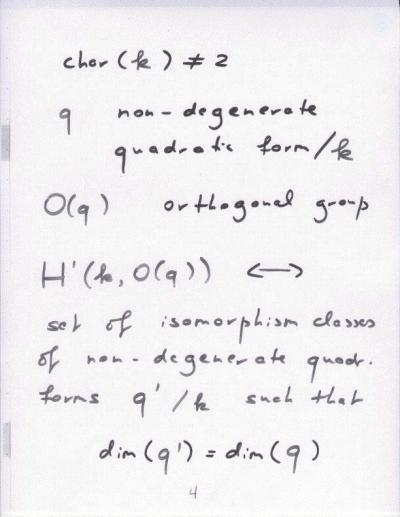 char(k) ≠ 2
q non-degenerate
quadratic form/k
O(q) orthogonal group
H¹(k, O(q)) ⟷
set of isomorphism classes
of non-degenerate quadr.
forms q'/k such that
dim(q') = dim(q)
4